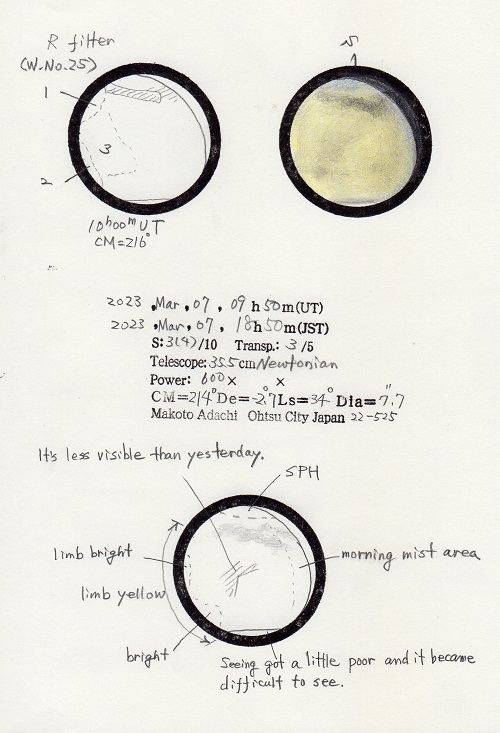 R filter
(W.No.25)
1
3
2
10ʰ00ᵐ UT
CM=216°
S
2023 ,Mar, 07, 09 h 50m(UT)
2023 ,Mar, 07, 18h 50m(JST)
S: 3(4)/10 Transp.: 3/5
Telescope: 355cm Newtonian
Power: 600× ×
CM=214° De=-2.7° Ls=34° Dia=7.7"
Makoto Adachi Ohtsu City Japan 22-525
It's less visible than yesterday.
SPH
limb bright
morning mist area
limb yellow
bright
Seeing got a little poor and it became
difficult to see.